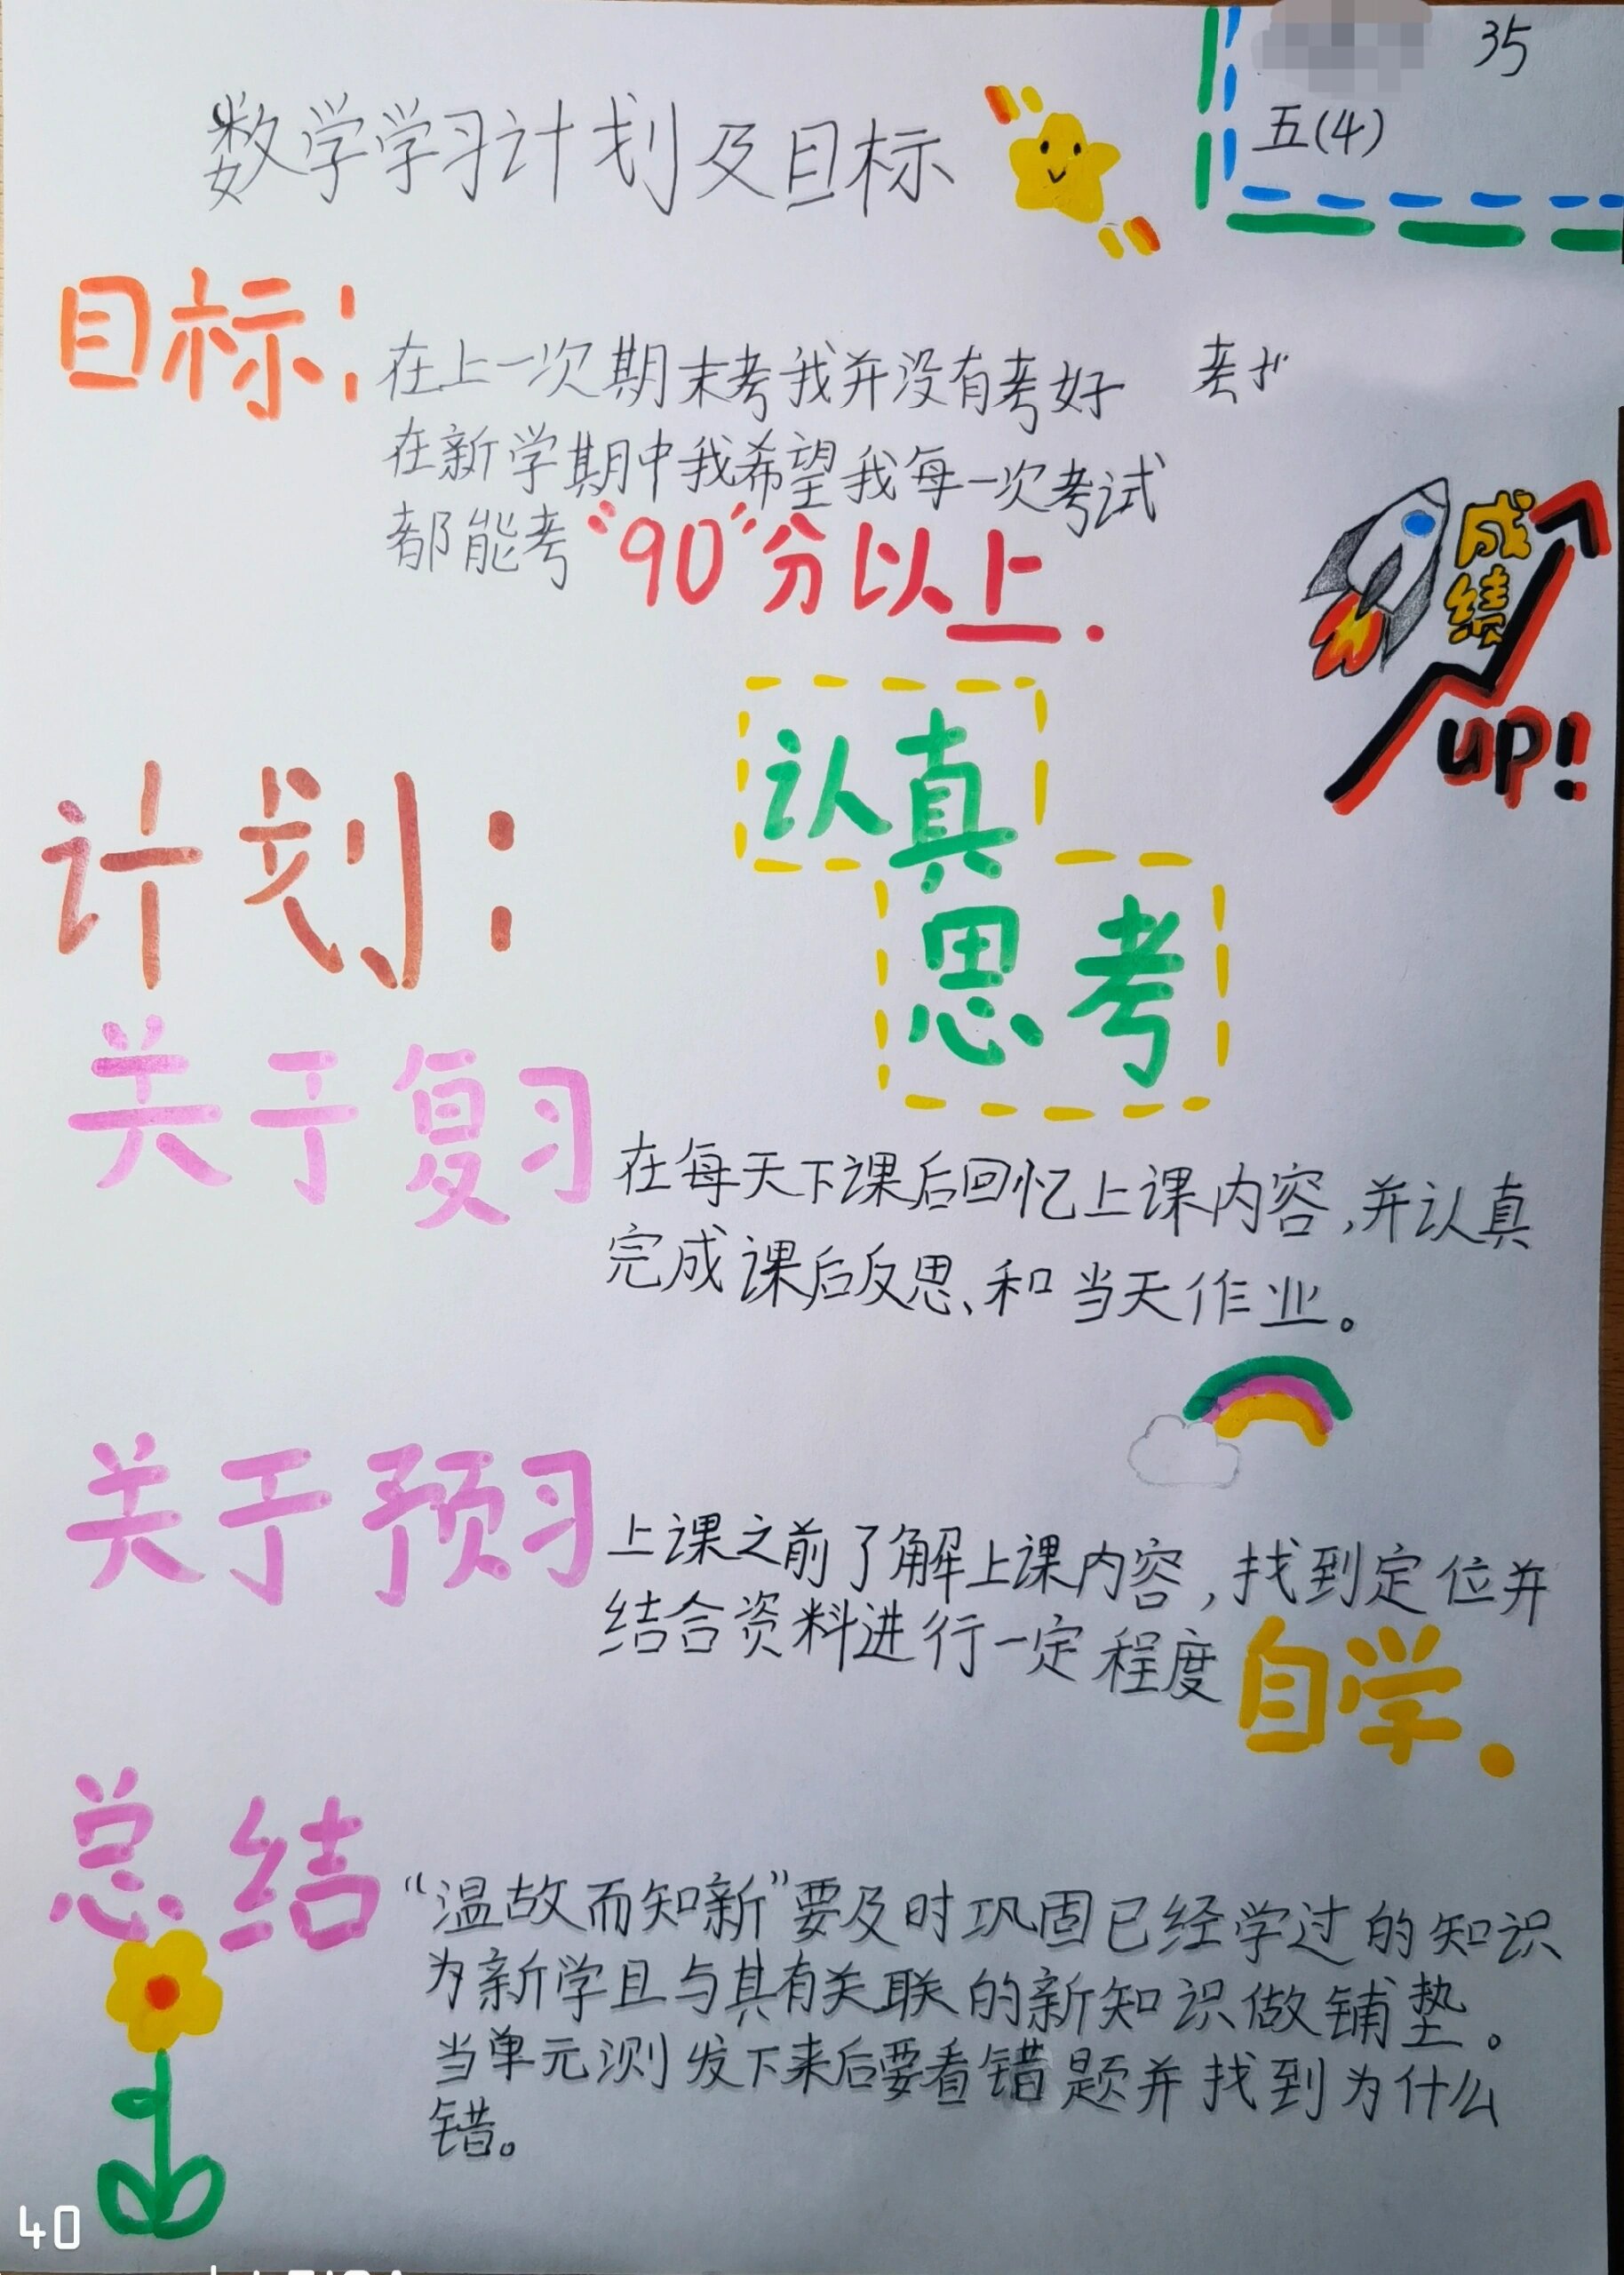 35
五(4)
数学学习计划及目标
目标:
在上一次期末考我并没有考好
在新学期中我希望我每一次考试
都能考“90”分以上.
成绩
up!
认真
思考
计划:
关于复习
在每天下课后回忆上课内容,并认真
完成课后反思、和当天作业。
关于预习
上课之前了解上课内容,找到定位并
结合资料进行一定程度自学.
总结
“温故而知新”要及时巩固已经学过的知识
为新学且与其有关联的新知识做铺垫。
当单元测发下来后要看错题并找到为什么
错。
40